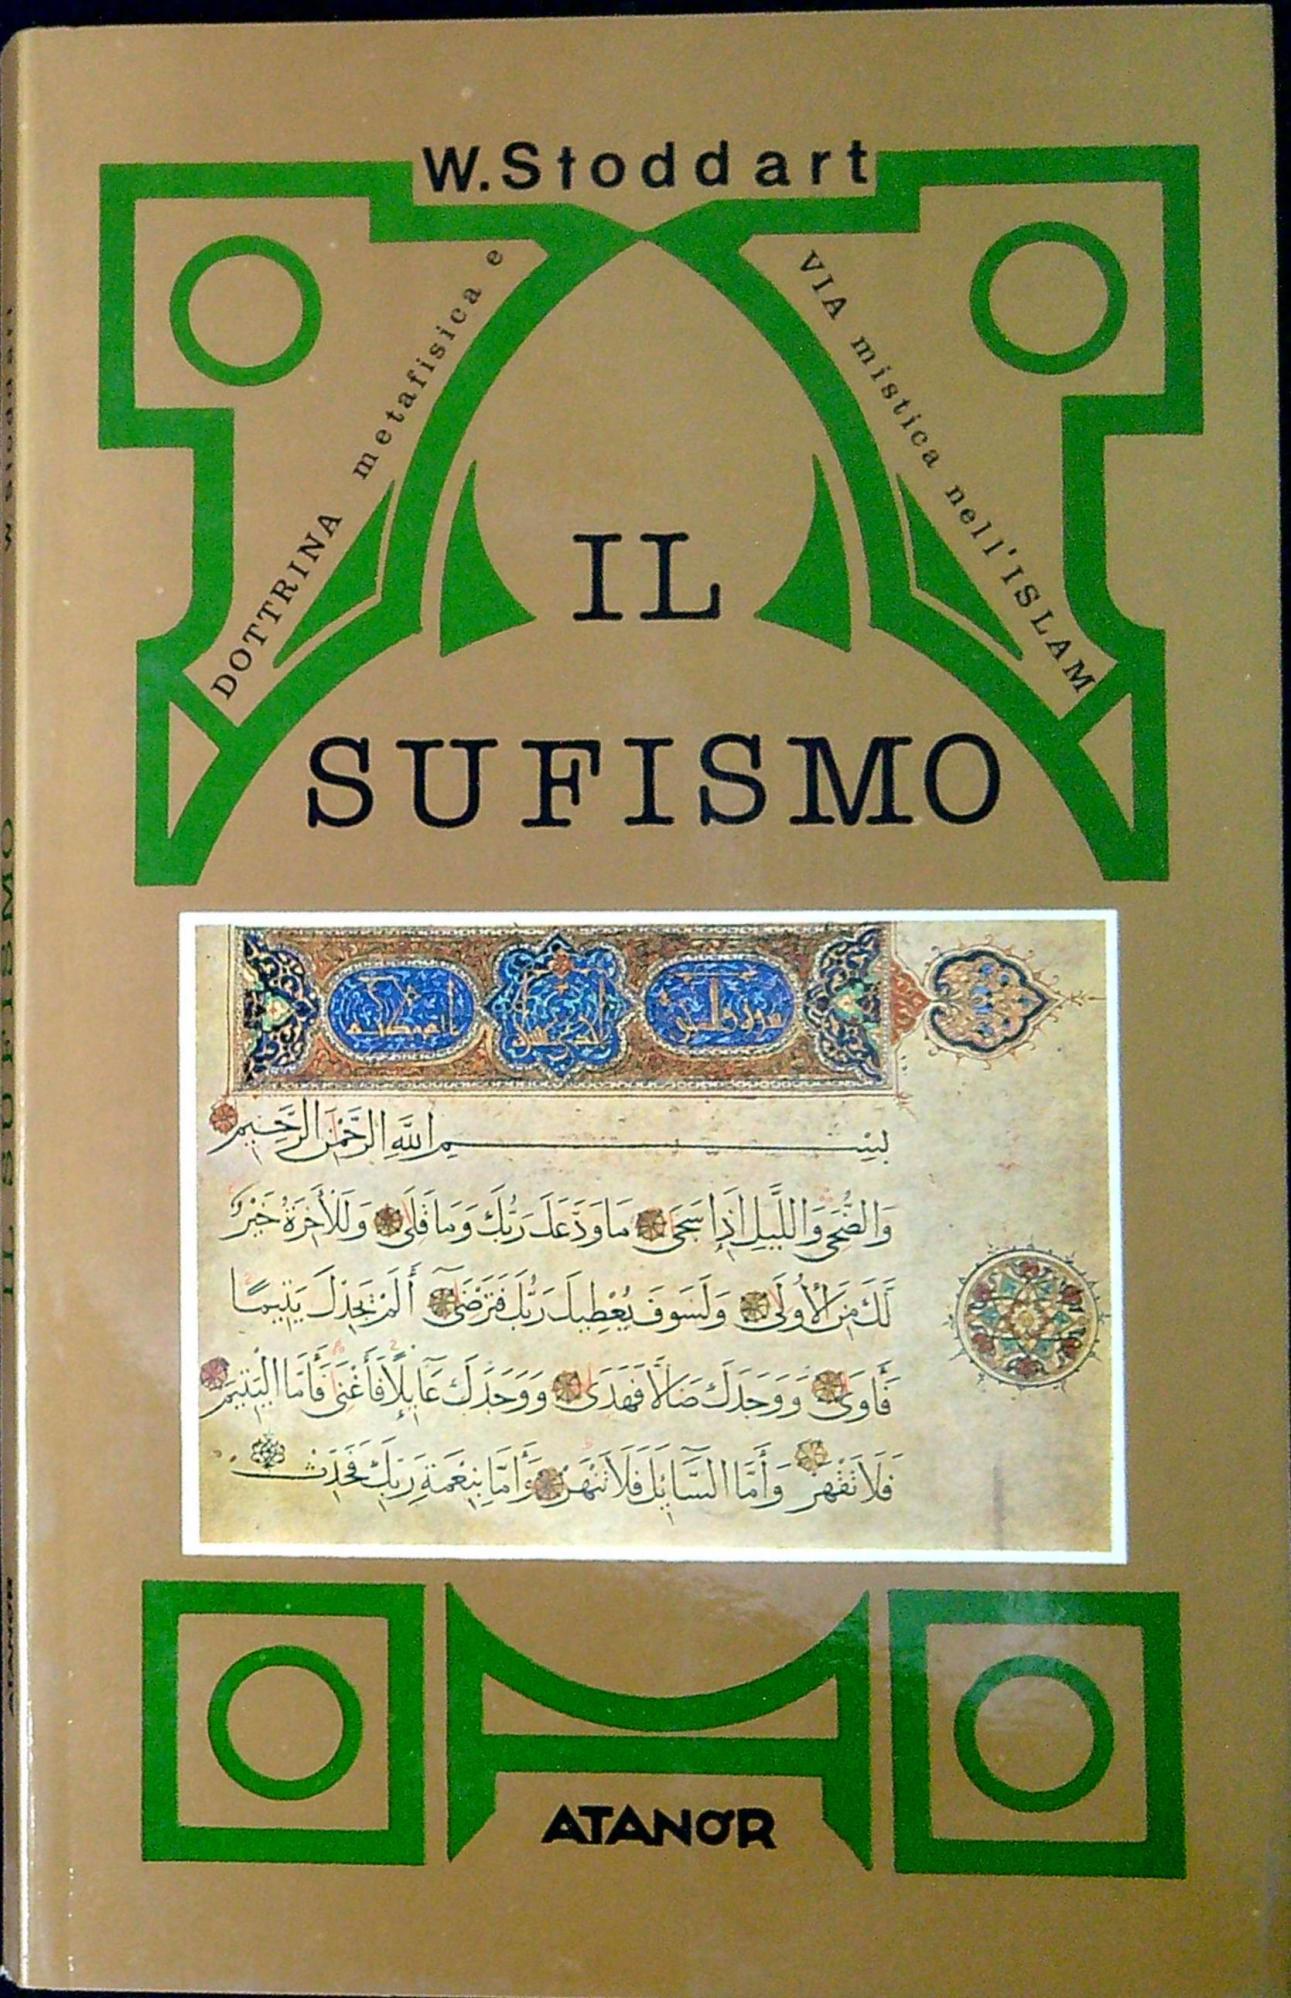 W.Stoddart
DOTTRINA metafisica e
VIA mistica nell'ISLAM
IL
SUFISMO
بسم الله الرحمن الرحيم
وَالضُّحَى وَاللَّيْلِ إِذَا سَجَى مَا وَدَّعَكَ رَبُّكَ وَمَا قَلَى وَلَلْأَخِرَةُ خَيْرٌ
لَكَ مِنَ الْأُولَى وَلَسَوْفَ يُعْطِيكَ رَبُّكَ فَتَرْضَى أَلَمْ يَجِدْكَ يَتِيمًا
فَأَوَى وَوَجَدَكَ ضَالًّا فَهَدَى وَوَجَدَكَ عَائِلًا فَأَغْنَى فَأَمَّا الْيَتِيمَ
فَلَا تَقْهَرْ وَأَمَّا السَّائِلَ فَلَا تَنْهَرْ وَأَمَّا بِنِعْمَةِ رَبِّكَ فَحَدِّثْ
ATANOR
W. Stoddart
IL SUFISMO
ATANOR